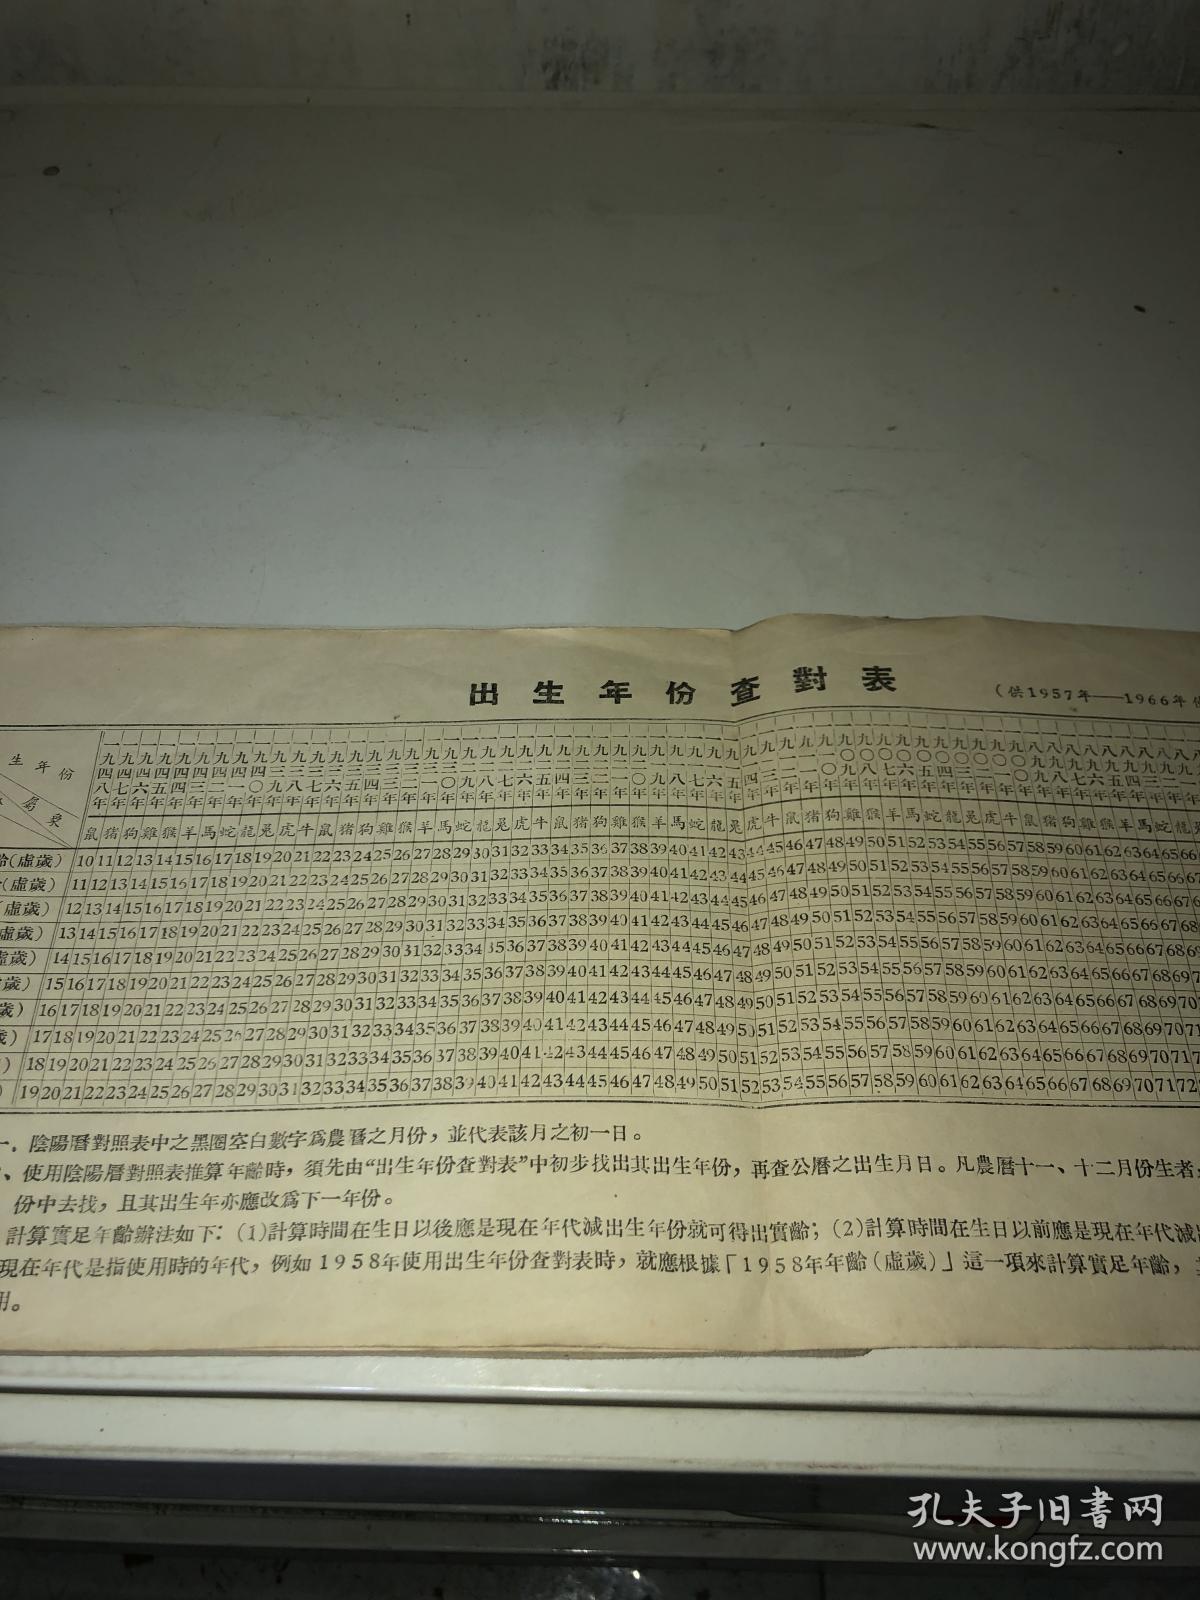 出生年份查對表
(供1957年——1966年
生年份
鼠豬狗雞猴羊馬蛇龍兎虎牛鼠豬狗雞猴羊馬蛇龍兎虎牛鼠豬狗雞猴羊馬蛇龍兎虎牛鼠豬狗雞猴羊馬蛇龍兎虎牛鼠豬狗雞猴羊馬蛇龍
(虛歲) 10 11 12 13 14 15 16 17 18 19 20 21 22 23 24 25 26 27 28 29 30 31 32 33 34 35 36 37 38 39 40 41 42 43 44 45 46 47 48 49 50 51 52 53 54 55 56 57 58 59 60 61 62 63 64 65 66
(虛歲) 11 12 13 14 15 16 17 18 19 20 21 22 23 24 25 26 27 28 29 30 31 32 33 34 35 36 37 38 39 40 41 42 43 44 45 46 47 48 49 50 51 52 53 54 55 56 57 58 59 60 61 62 63 64 65 66 67
(虛歲) 12 13 14 15 16 17 18 19 20 21 22 23 24 25 26 27 28 29 30 31 32 33 34 35 36 37 38 39 40 41 42 43 44 45 46 47 48 49 50 51 52 53 54 55 56 57 58 59 60 61 62 63 64 65 66 67
虛歲) 13 14 15 16 17 18 19 20 21 22 23 24 25 26 27 28 29 30 31 32 33 34 35 36 37 38 39 40 41 42 43 44 45 46 47 48 49 50 51 52 53 54 55 56 57 58 59 60 61 62 63 64 65 66 67 68
虛歲) 14 15 16 17 18 19 20 21 22 23 24 25 26 27 28 29 30 31 32 33 34 35 36 37 38 39 40 41 42 43 44 45 46 47 48 49 50 51 52 53 54 55 56 57 58 59 60 61 62 63 64 65 66 67 68 69
歲) 15 16 17 18 19 20 21 22 23 24 25 26 27 28 29 30 31 32 33 34 35 36 37 38 39 40 41 42 43 44 45 46 47 48 49 50 51 52 53 54 55 56 57 58 59 60 61 62 63 64 65 66 67 68 69
歲) 16 17 18 19 20 21 22 23 24 25 26 27 28 29 30 31 32 33 34 35 36 37 38 39 40 41 42 43 44 45 46 47 48 49 50 51 52 53 54 55 56 57 58 59 60 61 62 63 64 65 66 67 68 69 70
歲) 17 18 19 20 21 22 23 24 25 26 27 28 29 30 31 32 33 34 35 36 37 38 39 40 41 42 43 44 45 46 47 48 49 50 51 52 53 54 55 56 57 58 59 60 61 62 63 64 65 66 67 68 69 70 71
) 18 19 20 21 22 23 24 25 26 27 28 29 30 31 32 33 34 35 36 37 38 39 40 41 42 43 44 45 46 47 48 49 50 51 52 53 54 55 56 57 58 59 60 61 62 63 64 65 66 67 68 69 70 71
) 19 20 21 22 23 24 25 26 27 28 29 30 31 32 33 34 35 36 37 38 39 40 41 42 43 44 45 46 47 48 49 50 51 52 53 54 55 56 57 58 59 60 61 62 63 64 65 66 67 68 69 70 71 72
陰陽曆對照表中之黑圈空白數字爲農曆之月份，並代表該月之初一日。
、使用陰陽曆對照表推算年齡時，須先由“出生年份查對表”中初步找出其出生年份，再查公曆之出生月日。凡農曆十一、十二月份生者
份中去找，且其出生年亦應改爲下一年份。
計算實足年齡辦法如下：(1)計算時間在生日以後應是現在年代減出生年份就可得出實齡；(2)計算時間在生日以前應是現在年代減
現在年代是指使用時的年代，例如1958年使用出生年份查對表時，就應根據「1958年年齡(虛歲)」這一項來計算實足年齡，
用。
孔夫子旧書网
www.kongfz.com